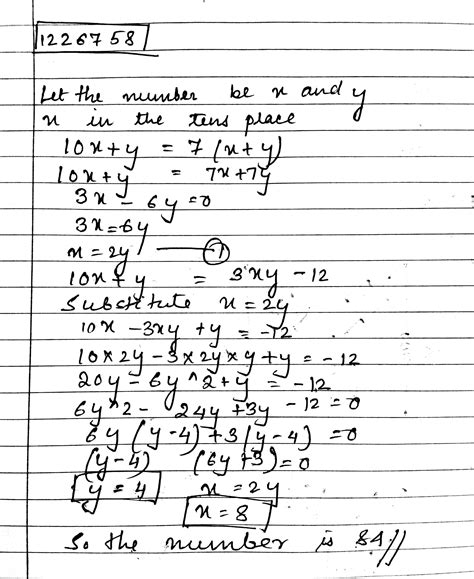 1226758
Let the number be x and y
x in the tens place
10x+y = 7(x+y)
10x+y = 7x+7y
3x - 6y = 0
3x = 6y
x = 2y — ①
10x + y = 3xy - 12
Substitute x = 2y
10x - 3xy + y = -12
10×2y - 3×2y×y + y = -12
20y - 6y^2 + y = -12
6y^2 - 24y + 3y - 12 = 0
6y (y-4) + 3(y-4) = 0
(y-4) (6y+3) = 0
y = 4 x = 2y
x = 8
So the number is 84//